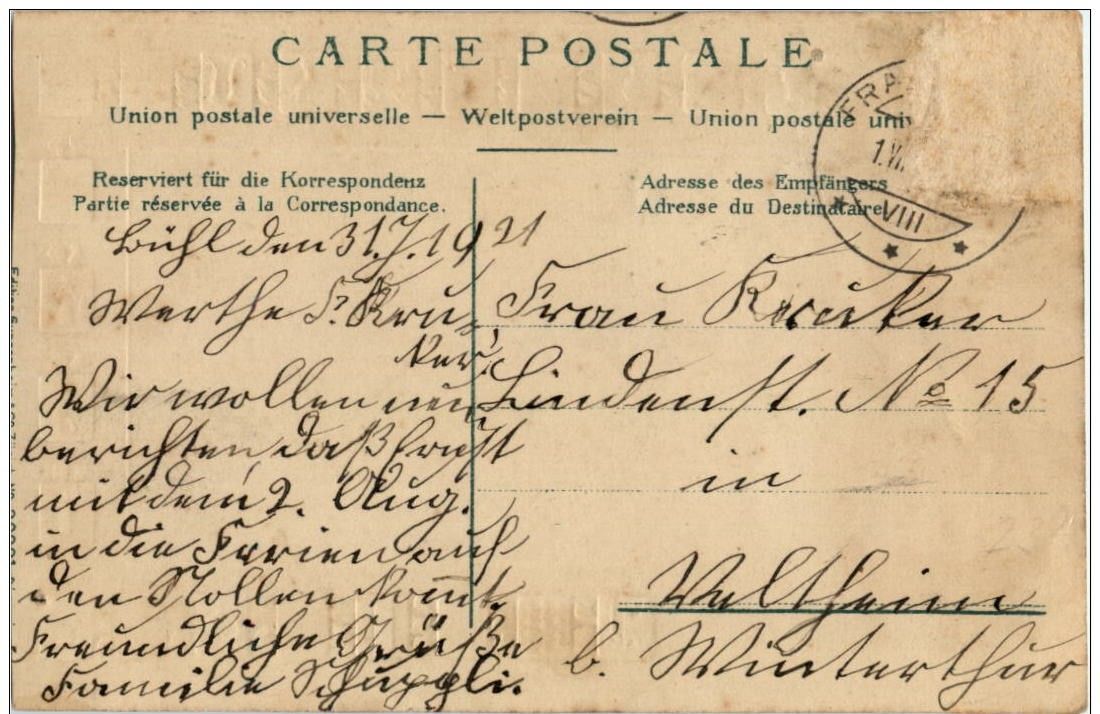 CARTE POSTALE
Union postale universelle — Weltpostverein — Union postale univ
Reserviert für die Korrespondenz
Partie réservée à la Correspondance.
Adresse des Empfängers
Adresse du Destinataire
FRA
1.VI
VIII
Bühl den 31.7.1921
Werthe Fr. Kru-
ker!
Wir wollen nur
berichten, daß
mit dem 2. Aug.
in die Ferien auf
den Nollen kommt
Freundliche Grüße
Familie Schuppli.
Frau Kruker
Lindenst. No 15
in
Veltheim
b. Winterthur